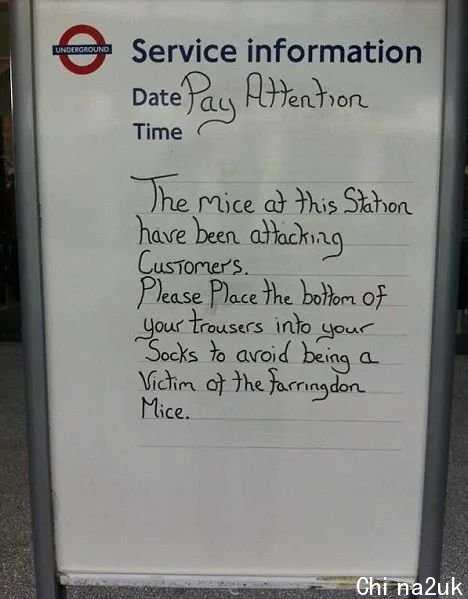 UNDERGROUND
Service information
Date Pay Attention
Time
The mice at this Station
have been attacking
Customers.
Please Place the bottom of
your trousers into your
Socks to avoid being a
Victim of the Farringdon
Mice.
Chi na2uk